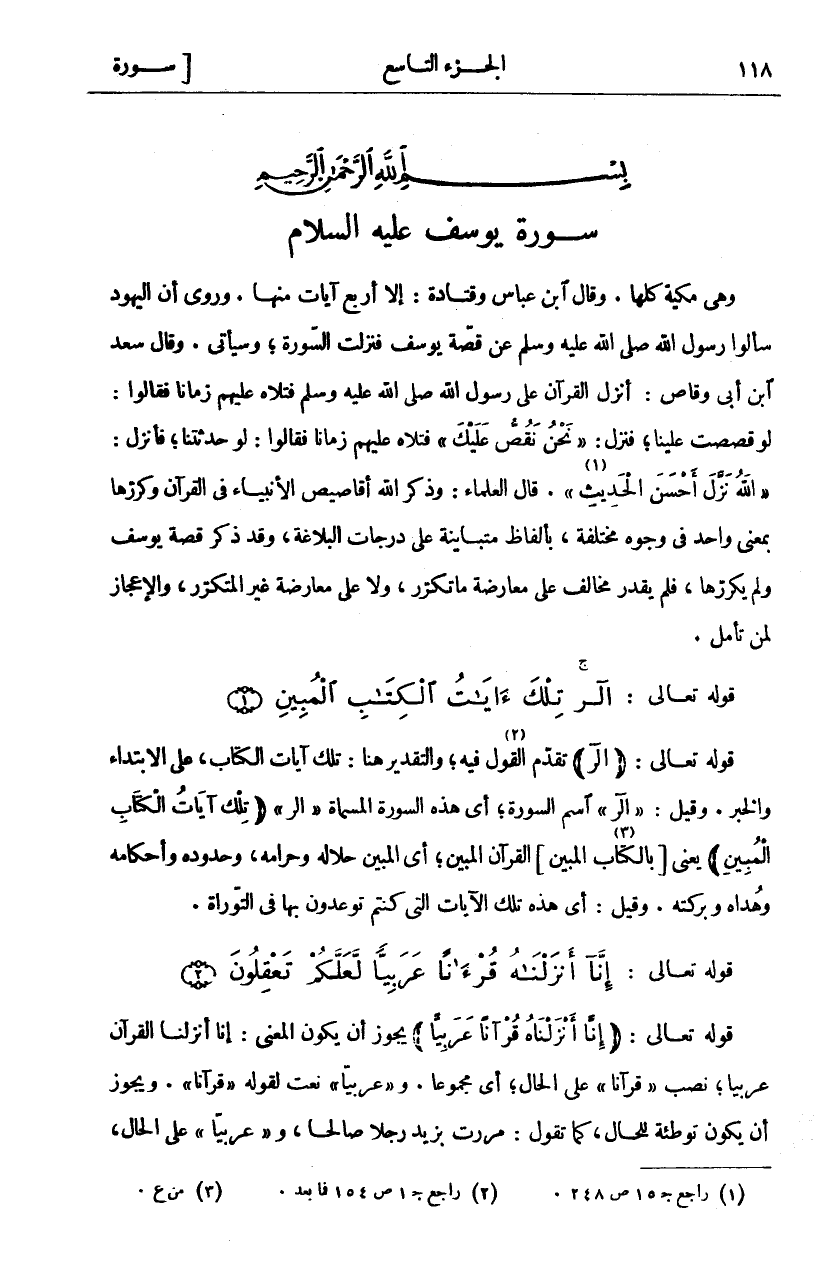 ١١٨ الجـزء التـاسع [ سـورة
بسـم الله الرحمن الرحيم
سـورة يوسف عليه السلام
وهى مكية كلها . وقال ابن عباس وقتـادة : إلا أربع آيات منهـا . وروى أن اليهود
سألوا رسول الله صلى الله عليه وسلم عن قصّة يوسف فنزلت السّورة ؛ وسيأتى . وقال سعد
ابن أبى وقاص : أنزل القرآن على رسول الله صلى الله عليه وسلم فتلاه عليهم زمانا فقالوا :
لو قصصت علينا ؛ فنزل : « نَحْنُ نَقُصُّ عَلَيْكَ » فتلاه عليهم زمانا فقالوا : لو حدثتنا ؛ فأنزل :
« اللهُ نَزَّلَ أَحْسَنَ الْحَدِيثِ (١) » . قال العلماء : وذكر الله أقاصيص الأنبيـاء فى القرآن وكررها
بمعنى واحد فى وجوه مختلفة ، بألفاظ متبـاينة على درجات البلاغة ، وقد ذكر قصة يوسف
ولم يكررها ، فلم يقدر مخالف على معارضة ما تكرّر ، ولا على معارضة غير المتكرّر ، والإعجاز
لمن تأمل .
قوله تعـالى : الٓر ۚ تِلْكَ ءَايَـٰتُ ٱلْكِتَـٰبِ ٱلْمُبِينِ ١
قوله تعـالى : ( الٓر ) تقدّم القول فيه (٢) ؛ والتقدير هنا : تلك آيات الكتاب ، على الابتداء
والخبر . وقيل : « الٓر » اسم السورة ؛ أى هذه السورة المسماة « الر » ( تِلْكَ آيَاتُ الْكِتَابِ
الْمُبِينِ ) يعنى [ بالكتاب المبين ] (٣) القرآن المبين ؛ أى المبين حلاله وحرامه ، وحدوده وأحكامه
وهُداه وبركته . وقيل : أى هذه تلك الآيات التى كنتم توعدون بها فى التّوراة .
قوله تعـالى : إِنَّآ أَنزَلْنَـٰهُ قُرْءَٰنًا عَرَبِيًّا لَّعَلَّكُمْ تَعْقِلُونَ ٢
قوله تعـالى : ( إِنَّا أَنْزَلْنَاهُ قُرْآنًا عَرَبِيًّا ) يجوز أن يكون المعنى : إنا أنزلنـا القرآن
عربيا ؛ نصب « قرآنا » على الحال ؛ أى مجموعا . و « عربيّا » نعت لقوله « قرآنا » . ويجوز
أن يكون توطئة للحـال ، كما تقول : مررت بزيد رجلا صالحـا ، و « عربيّا » على الحال ،
(١) راجع جـ ١٥ ص ٢٤٨ . (٢) راجع جـ ١ ص ١٥٤ فما بعد . (٣) من ع .